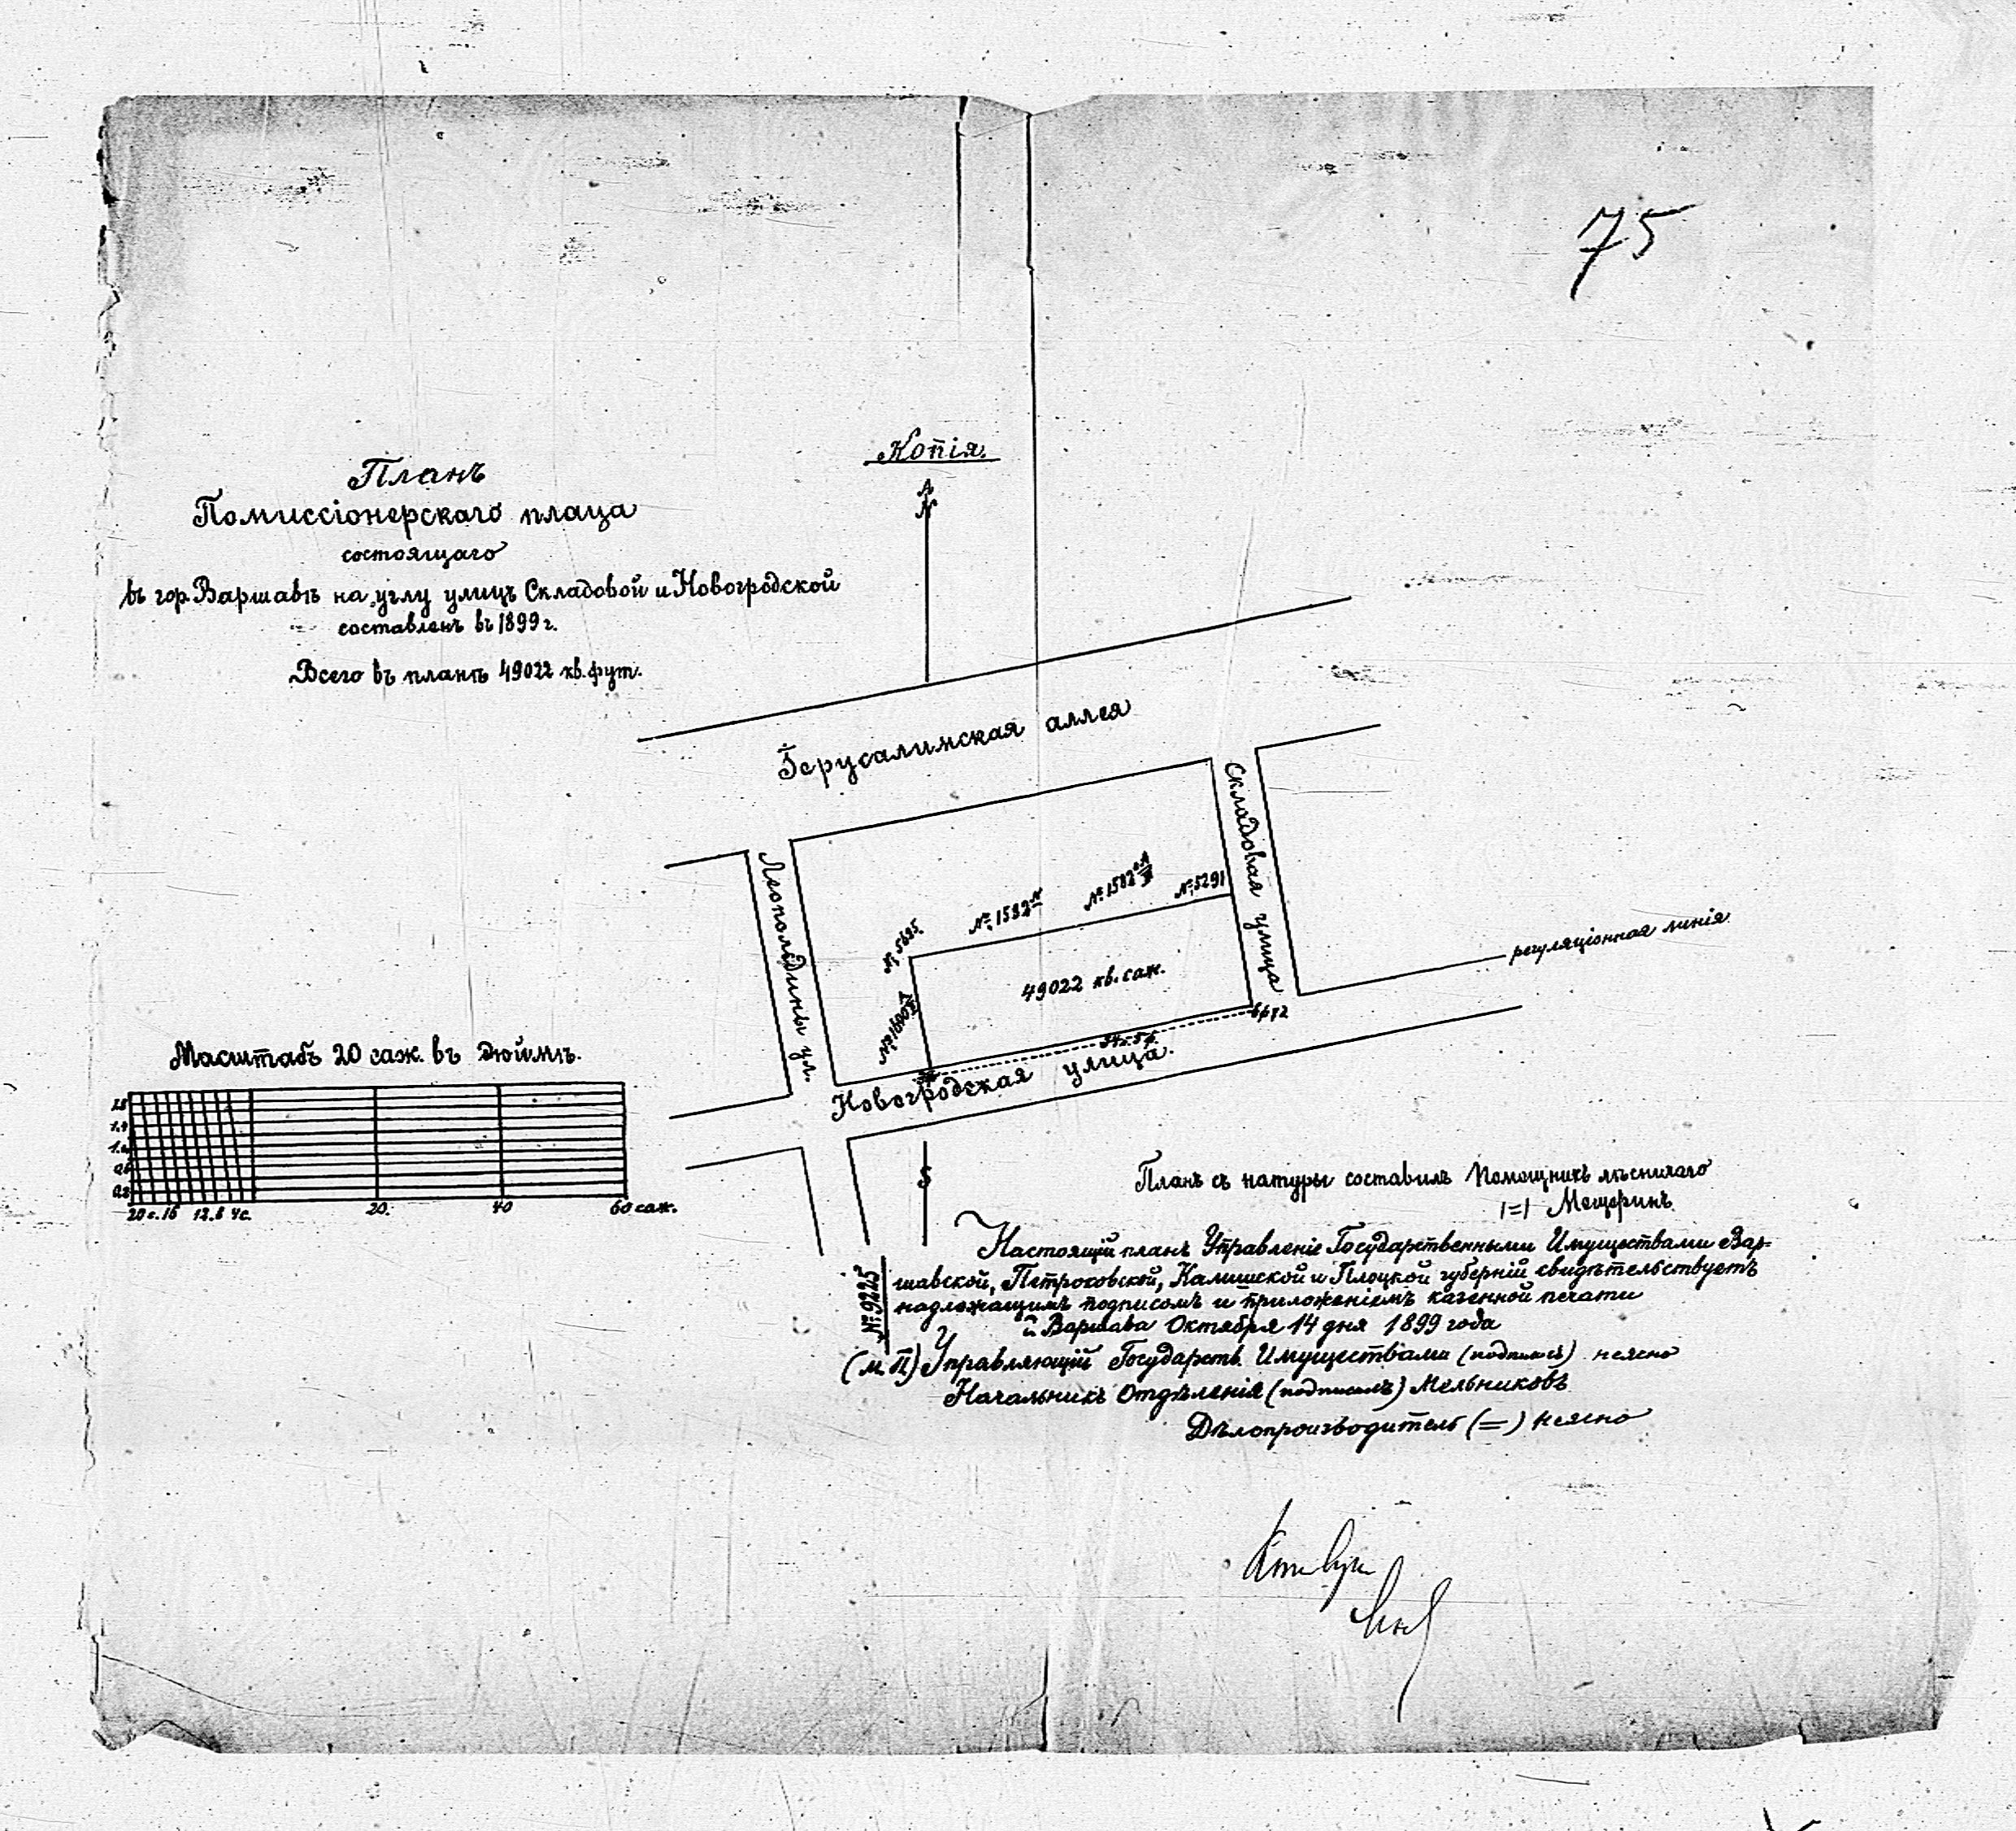 75
Копія.
Планъ
Помиссіонерскаго плаца
состоящаго
въ гор. Варшавѣ на углу улицъ Складовой и Новогродской
составленъ въ 1899 г.
Всего въ планѣ 49022 кв. фут.
N
Іерусалимская аллея
Складовая улица
Леопольдины ул.
№ 5695
№ 1582
№ 1582
№ 5291
49022 кв. саж.
регуляціонная линія
Новогродская улица.
Масштабъ 20 саж. въ дюймѣ.
20 с. 16 12. 8 4 с. 20. 40 60 саж.
S
Планъ съ натуры составилъ Помощникъ лѣсничаго
/=/ Мещеринъ
№ 9225
Настоящій планъ Управленіе Государственными Имуществами Вар-
шавской, Петроковской, Калишской и Плоцкой губерній свидѣтельствуетъ
надлежащимъ подписомъ и приложеніемъ казенной печати
г. Варшава Октября 14 дня 1899 года
(М. П) Управляющій Государств. Имуществами (подписъ) неясно
Начальникъ Отдѣленія (подписалъ) Мельниковъ
Дѣлопроизводитель (=) неясно